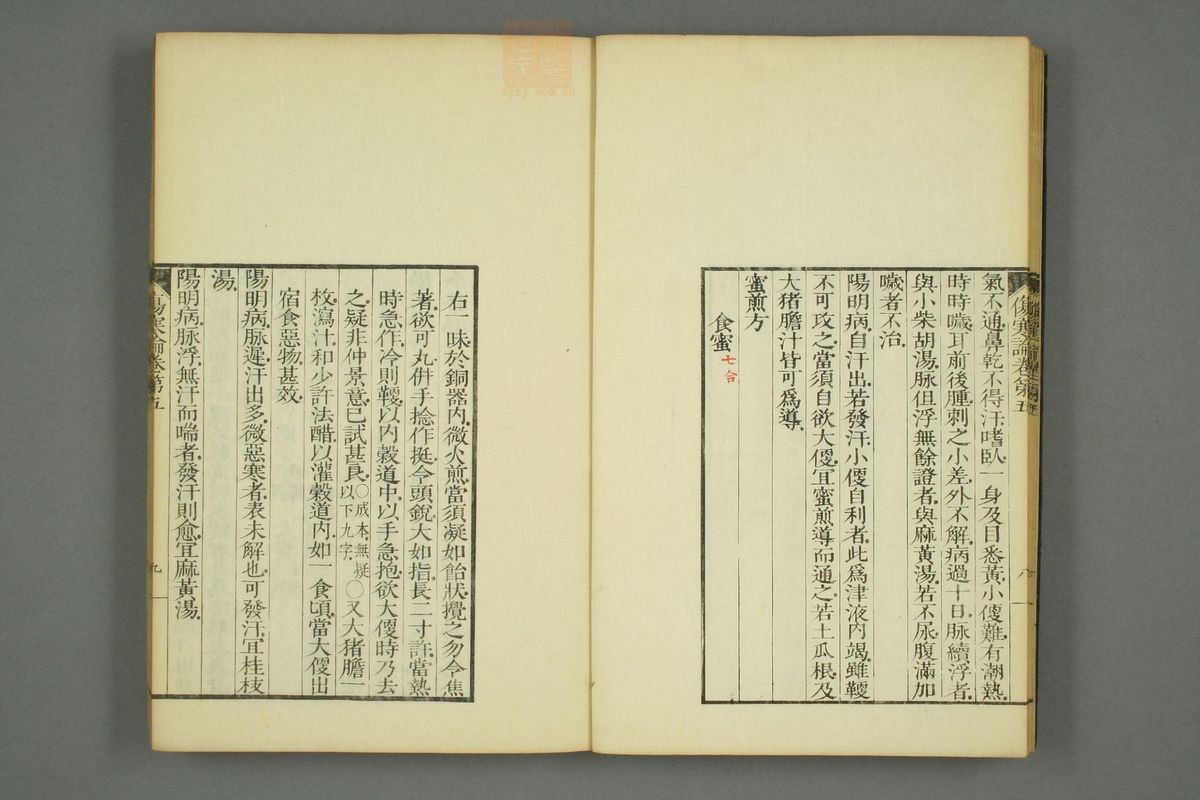 傷寒論卷第五
八
氣不通。鼻乾不得汗。嗜臥。一身及目悉黃。小便難。有潮熱。
時時噦。耳前後腫。刺之小差。外不解。病過十日。脈續浮者。
與小柴胡湯。脈但浮。無餘證者。與麻黃湯。若不尿。腹滿加
噦者不治。
陽明病。自汗出。若發汗。小便自利者。此爲津液內竭。雖鞕
不可攻之。當須自欲大便。宜蜜煎導而通之。若土瓜根。及
大猪膽汁皆可爲導。
蜜煎方
食蜜七合
右一味。於銅器內。微火煎。當須凝如飴狀。攪之勿令焦
著。欲可丸。併手捻作挺。令頭銳。大如指。長二寸許。當熱
時急作。冷則鞕。以內穀道中。以手急抱。欲大便時乃去
之。疑非仲景意。已試甚良。○成本。無疑以下九字。○又大猪膽一
枚。瀉汁。和少許法醋。以灌穀道內。如一食頃。當大便出
宿食惡物甚效。
陽明病。脈遲。汗出多。微惡寒者。表未解也。可發汗。宜桂枝
湯。
陽明病。脈浮。無汗而喘者。發汗則愈。宜麻黃湯。
傷寒論卷第五
九
zysj.com.cn